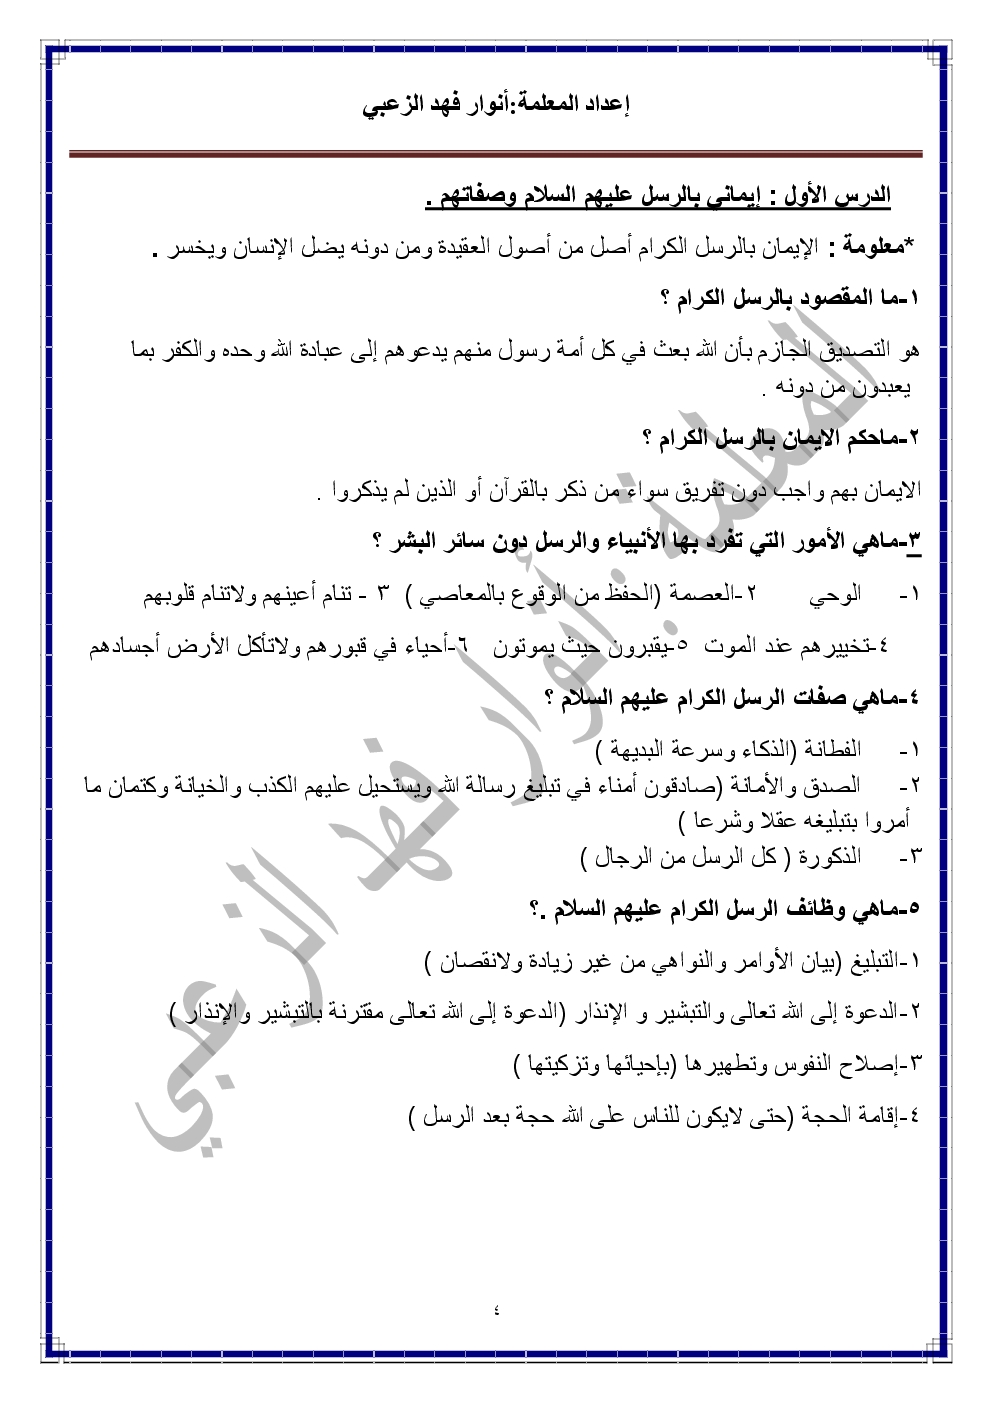 إعداد المعلمة:أنوار فهد الزعبي
الدرس الأول : إيماني بالرسل عليهم السلام وصفاتهم .
*معلومة : الإيمان بالرسل الكرام أصل من أصول العقيدة ومن دونه يضل الإنسان ويخسر .
١-ما المقصود بالرسل الكرام ؟
هو التصديق الجازم بأن الله بعث في كل أمة رسول منهم يدعوهم إلى عبادة الله وحده والكفر بما
يعبدون من دونه .
٢-ماحكم الايمان بالرسل الكرام ؟
الايمان بهم واجب دون تفريق سواء من ذكر بالقرآن أو الذين لم يذكروا .
٣-ماهي الأمور التي تفرد بها الأنبياء والرسل دون سائر البشر ؟
١- الوحي ٢-العصمة (الحفظ من الوقوع بالمعاصي ) ٣ - تنام أعينهم ولاتنام قلوبهم
٤-تخييرهم عند الموت ٥-يقبرون حيث يموتون ٦-أحياء في قبورهم ولاتأكل الأرض أجسادهم
٤-ماهي صفات الرسل الكرام عليهم السلام ؟
١- الفطانة (الذكاء وسرعة البديهة )
٢- الصدق والأمانة (صادقون أمناء في تبليغ رسالة الله ويستحيل عليهم الكذب والخيانة وكتمان ما
أمروا بتبليغه عقلا وشرعا )
٣- الذكورة ( كل الرسل من الرجال )
٥-ماهي وظائف الرسل الكرام عليهم السلام .؟
١-التبليغ (بيان الأوامر والنواهي من غير زيادة ولانقصان )
٢-الدعوة إلى الله تعالى والتبشير و الإنذار (الدعوة إلى الله تعالى مقترنة بالتبشير والإنذار )
٣-إصلاح النفوس وتطهيرها (بإحيائها وتزكيتها )
٤-إقامة الحجة (حتى لايكون للناس على الله حجة بعد الرسل )
المعلمة: أنوار فهد الزعبي
٤